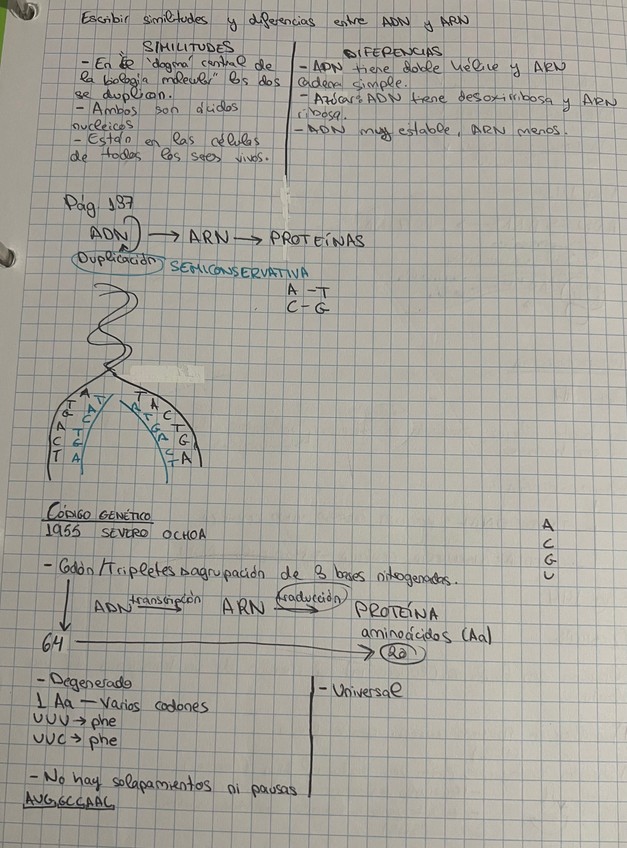 Escribir similitudes y diferencias entre ADN y ARN
SIMILITUDES
- En el "dogma" central de
la biología molecular" los dos
se duplican.
- Ambos son ácidos
nucleicos
- Están en las células
de todos los seres vivos.
DIFERENCIAS
- ADN tiene doble hélice y ARN
cadena simple.
- Azúcar: ADN tiene desoxirribosa y ARN
ribosa.
- ADN muy estable, ARN menos.
Pág 137
ADN → ARN → PROTEÍNAS
Duplicación SEMICONSERVATIVA
A - T
C - G
CÓDIGO GENÉTICO
1955 SEVERO OCHOA
A
C
G
U
- Codón/Tripletes agrupación de 3 bases nitrogenadas.
ADN transcripción ARN traducción PROTEÍNA
aminoácidos (Aa)
64 → 20
- Degenerado
1 Aa - Varios codones
UUU → phe
UUC → phe
- Universal
- No hay solapamientos ni pausas
AUGGCCAAC